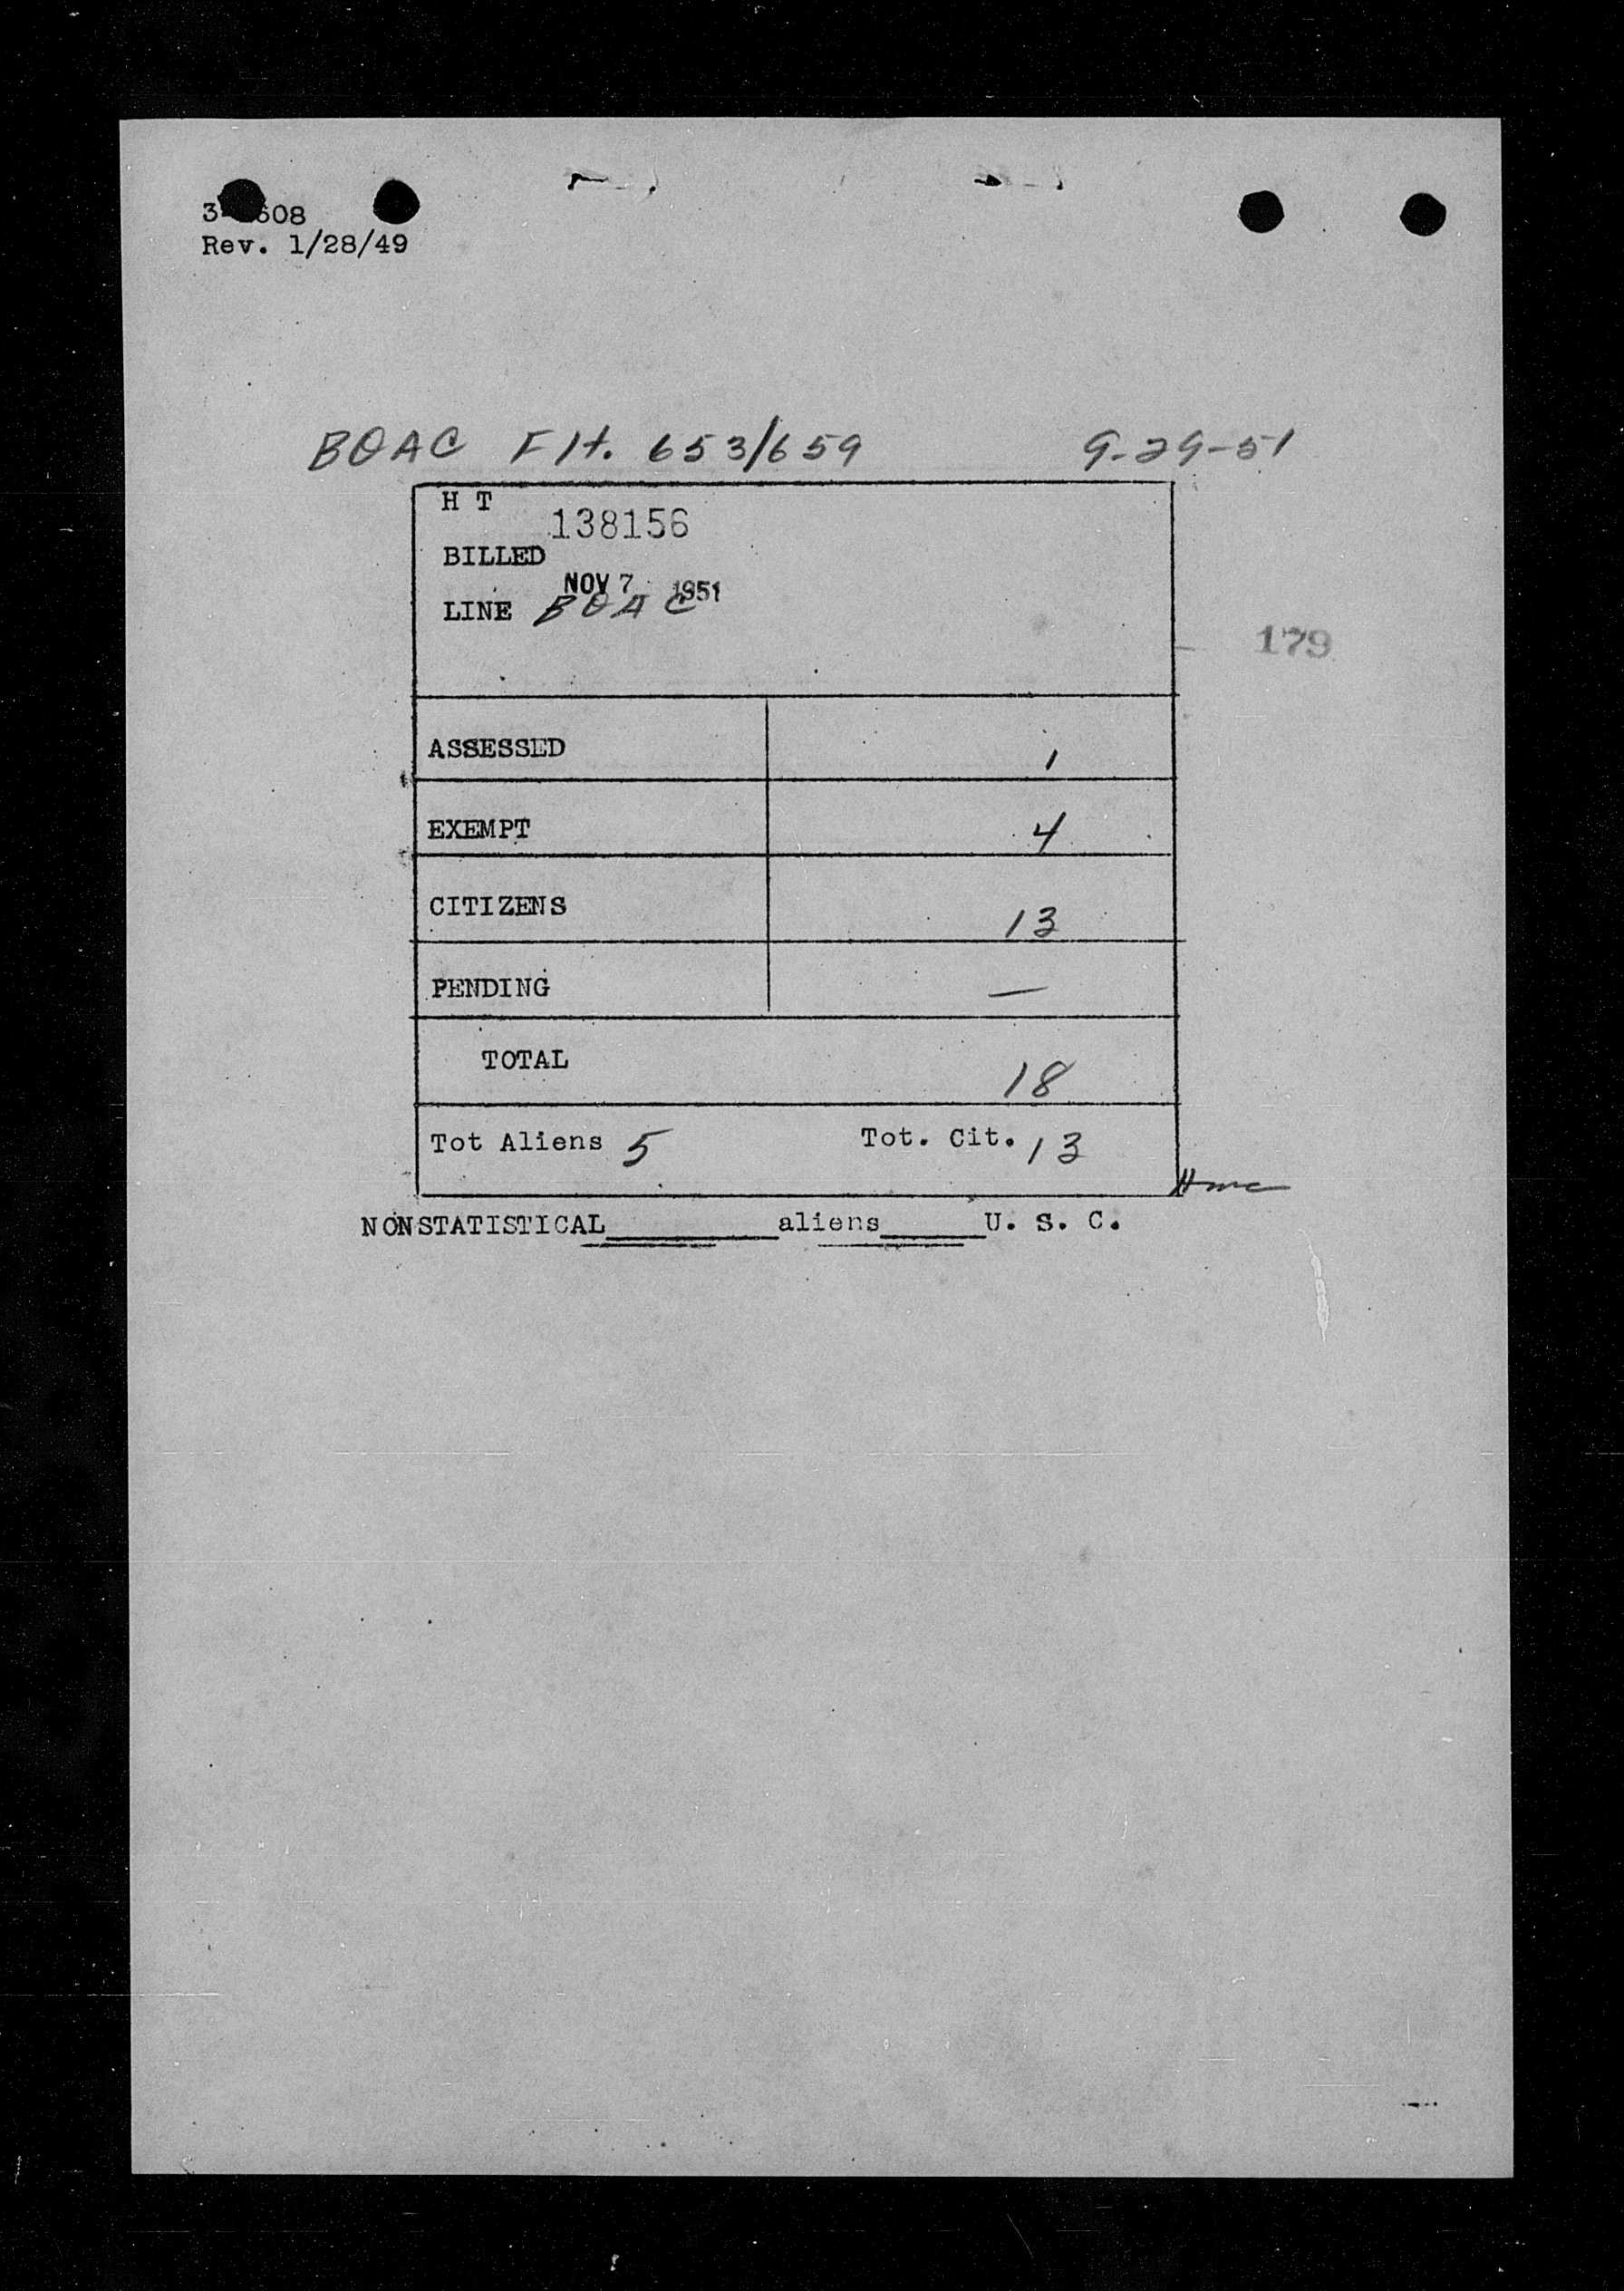 608
Rev. 1/28/49
BOAC Flt. 653/659 9-29-51
H T
138156
BILLED
NOV 7 1951
LINE BOAC
179
ASSESSED 1
EXEMPT 4
CITIZENS 13
PENDING —
TOTAL 18
Tot Aliens 5 Tot. Cit. 13
NONSTATISTICAL________aliens_____U. S. C.